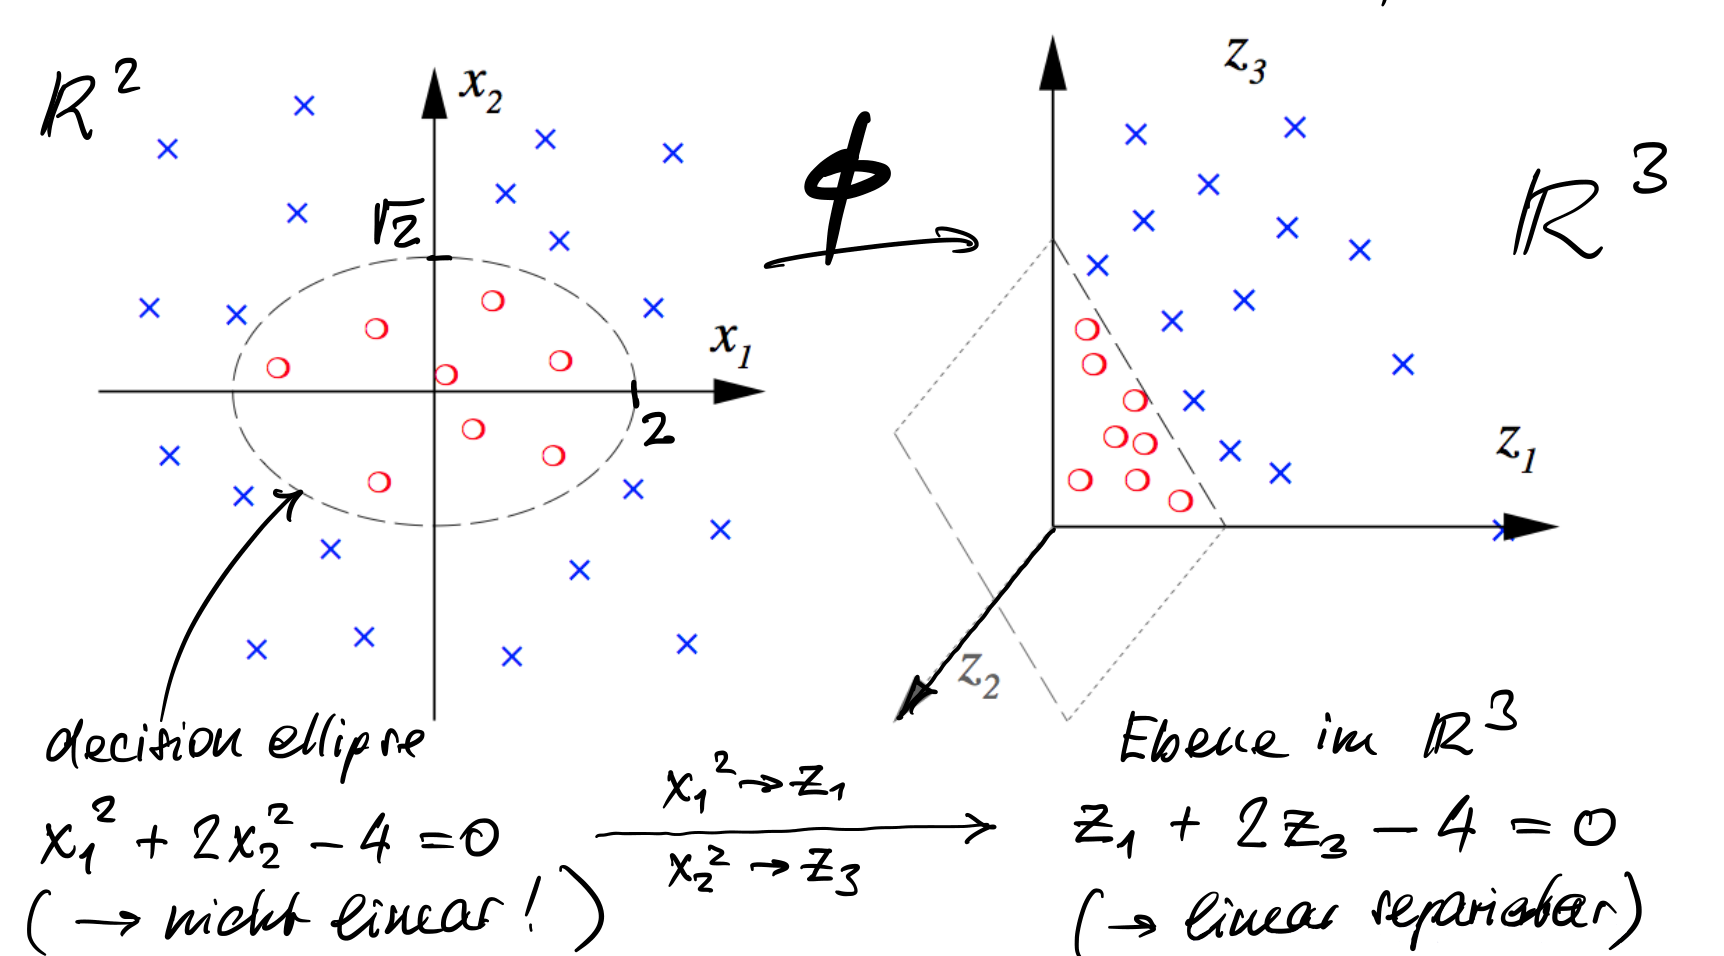 ℝ²
x₂
√2
x₁
2
ϕ
z₃
ℝ³
z₁
z₂
decision ellipse
x₁² + 2x₂² − 4 = 0
(→ nicht linear!)
x₁² → z₁
x₂² → z₃
Ebene im ℝ³
z₁ + 2z₃ − 4 = 0
(→ linear separierbar)